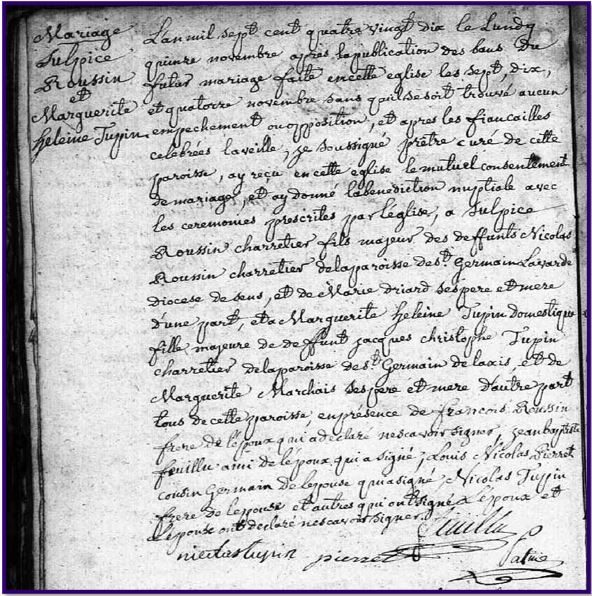 Mariage
Sulpice
Roussin
et
Marguerite
heleine Tupin
Lan mil sept cent quatre vingt dix le Lundy
quinze novembre apres la publication des bans du
futur mariage faite en cette eglise les sept, dix,
et quatorze novembre sans quil se soit trouvé aucun
empechement ou opposition, et apres les fiancailles
celebrées la veille, je soussigné prêtre curé de cette
paroisse, ay reçu en cette eglise le mutuel consentement
de mariage, et ay donné la benediction nuptiale avec
les ceremonies prescrites par l'église, a Sulpice
Roussin charretier fils majeur des deffunts Nicolas
Roussin charretier de la paroisse de st. Germain Lavarde
diocese de sens, et de Marie driard ses pere et mere
d'une part, et a Marguerite heleine Tupin domestique
fille majeure de deffunt jacques christophe Tupin
charretier de la paroisse de st Germain de laxis, et de
Marguerite Marchais ses pere et mere d'autre part
tous de cette paroisse en presence de francois Roussin
frere de l'époux qui a declaré ne scavoir signer, jean baptiste
feuillu ami de l'époux qui a signé, Louis Nicolas Pierret
cousin Germain de lepouse qui a signé, Nicolas Tupin
frere de lepouse et autres qui ont signé Lepoux et
lepouse ont déclaré ne scavoir signer
nicolas tupin pierret